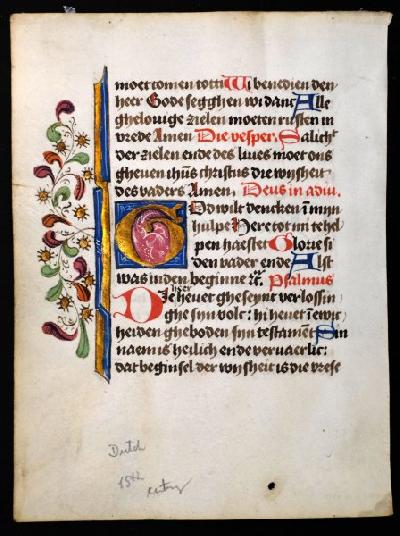 moet comen tot ti Wi benedien den
heer Gode segghen wi danc Alle
ghelouige zielen moeten rusten in
vrede Amen Die vesper. Salich
der zielen ende des liues moet ons
gheuen ihus christus die wijsheit
des vaders Amen. Deus in adiu.
God wilt dencken in mijn
hulpe Here tot mi te hel
pen haestet Glorie si
den vader ende Alst
was inden beginne Psalmus
hier
Die heuet ghesent verlossin
ghe sijn volc: hi heuet in ewic
heiden gheboden sijn testament Sin
naem is heilich ende veruaerlic:
dat beginsel der wijsheit is die vrese
Dutch
15th
century